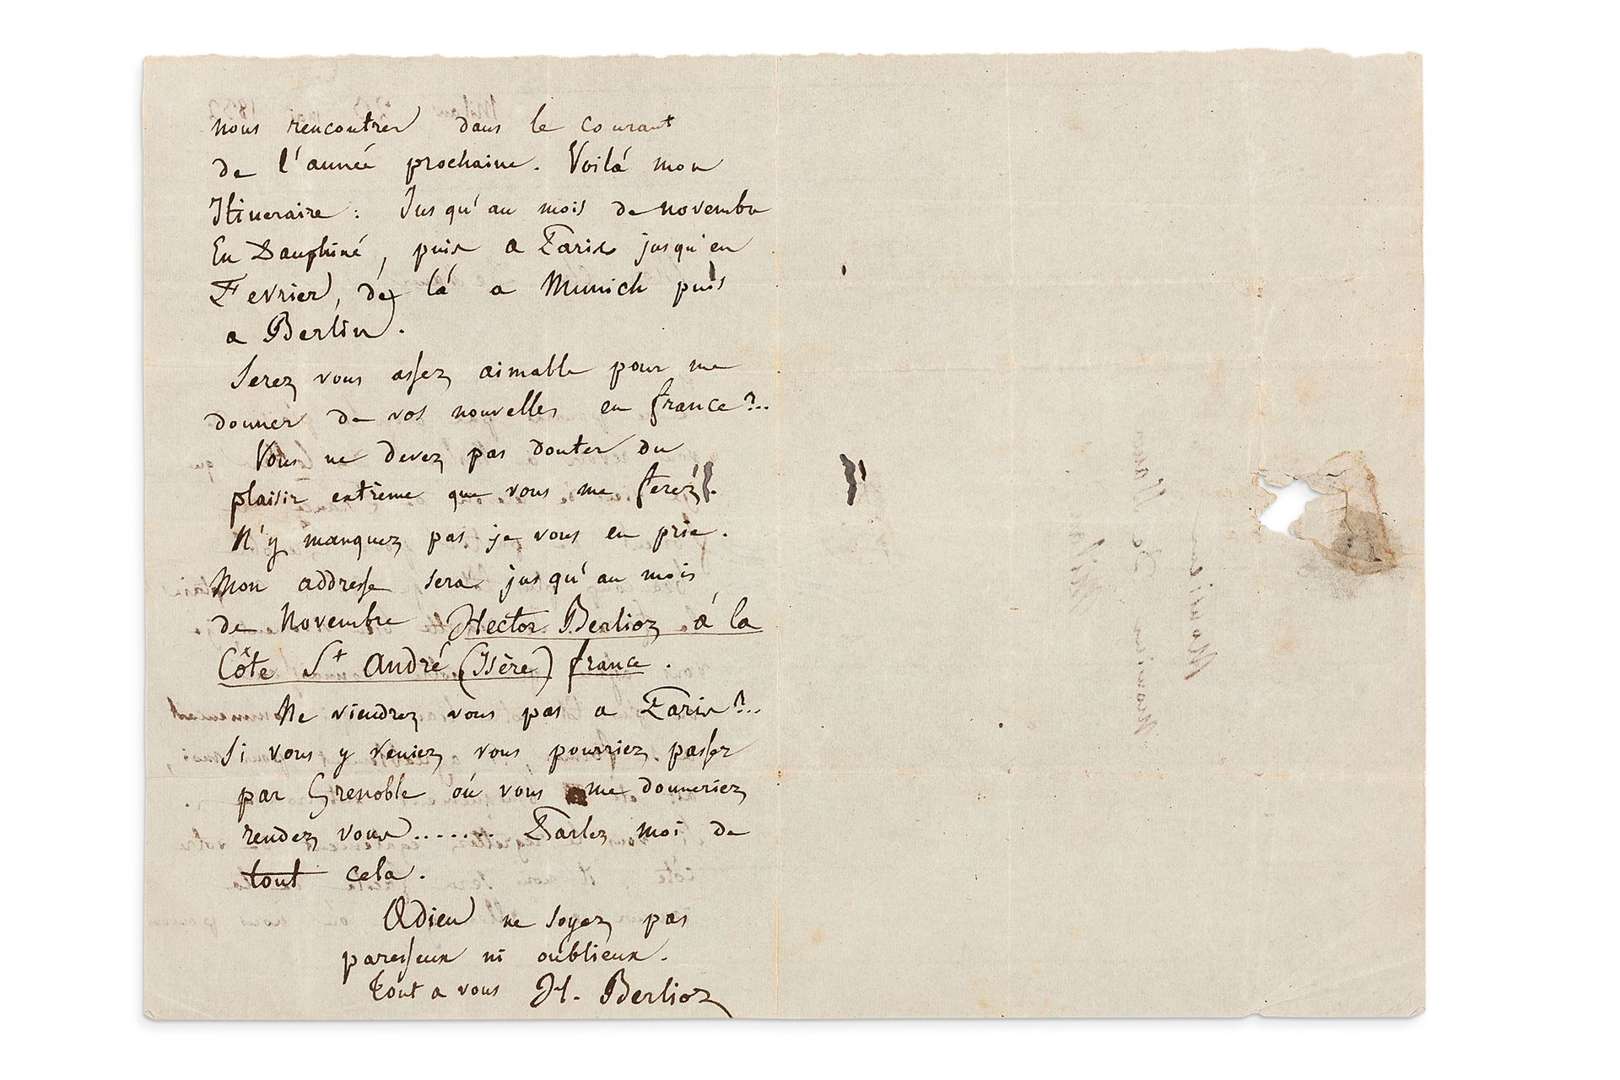 nous rencontrer dans le courant
de l'année prochaine. Voilá mon
Itineraire : Jusqu'au mois de novembre
En Dauphiné, puis a Paris jusqu'en
Fevrier, de là a Munich puis
a Berlin.
Serez vous assez aimable pour me
donner de vos nouvelles en france?..
Vous ne devez pas douter du
plaisir extrême que vous me ferez.
N'y manquez pas je vous en prie.
Mon addresse sera jusqu'au mois
de Novembre Hector Berlioz á la
Côte St André (Isère) france.
Ne viendrez vous pas a Paris?...
Si vous y veniez vous pourriez passer
par Grenoble où vous me donneriez
rendez vous....... Parlez moi de
tout cela.
Adieu ne soyez pas
paresseux ni oublieux.
tout a vous H. Berlioz